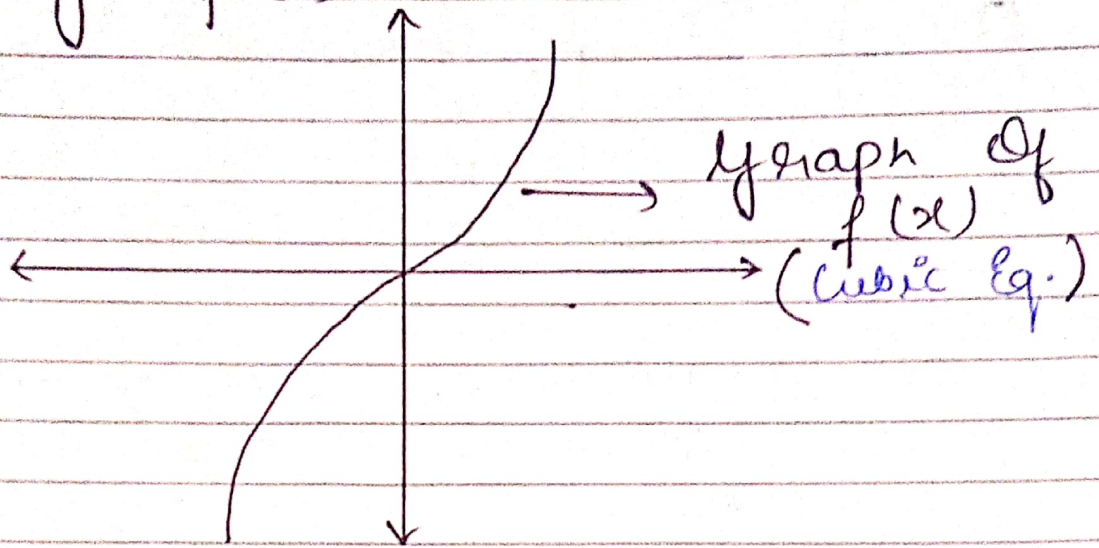 Graph Of
f(x)
(Cubic Eq.)